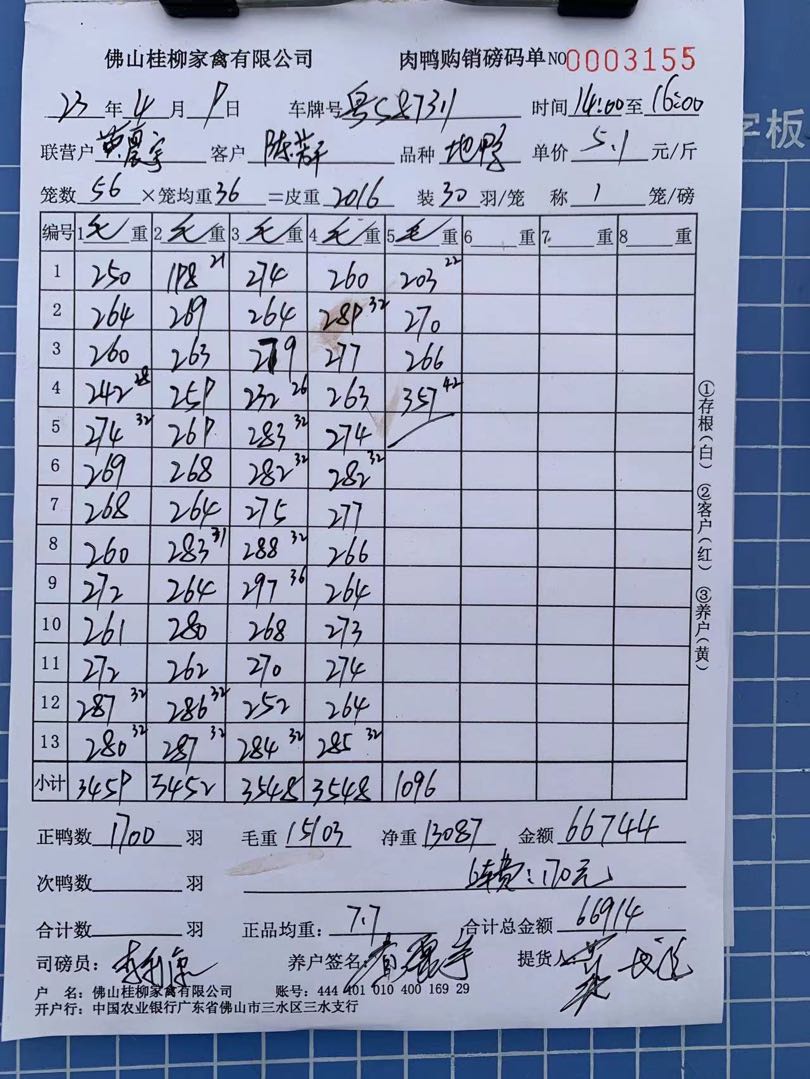 佛山桂柳家禽有限公司 肉鸭购销磅码单 NO 0003155
23年4月9日 车牌号 粤S87311 时间 14:00至16:00
联营户 客户 品种 地鸭 单价 5.1 元/斤
笼数 56 ×笼均重 36 =皮重 2016 装 30 羽/笼 称 1 笼/磅
编号 1 毛 重 2 毛 重 3 毛 重 4 毛 重 5 毛 重 6 重 7 重 8 重
1 250 198 21 274 260 203 22
2 264 269 264 289 32 270
3 260 263 279 277 266
4 242 28 259 232 26 263 357 42
5 274 32 269 283 32 274
6 269 268 282 32 282 32
7 268 264 275 277
8 260 283 31 288 32 266
9 272 264 297 36 264
10 261 280 268 273
11 272 262 270 274
12 287 32 286 32 252 264
13 280 32 287 32 284 32 285 32
小计 3459 3452 3548 3548 1096
正鸭数 1700 羽 毛重 15103 净重 13087 金额 66744
次鸭数 羽 费:170元
合计数 羽 正品均重: 7.7 合计总金额 66914
司磅员: 养户签名: 提货人
户 名: 佛山桂柳家禽有限公司 账号: 444 101 010 400 169 29
开户行: 中国农业银行广东省佛山市三水区三水支行
①存根(白) ②客户(红) ③养户(黄)
字板